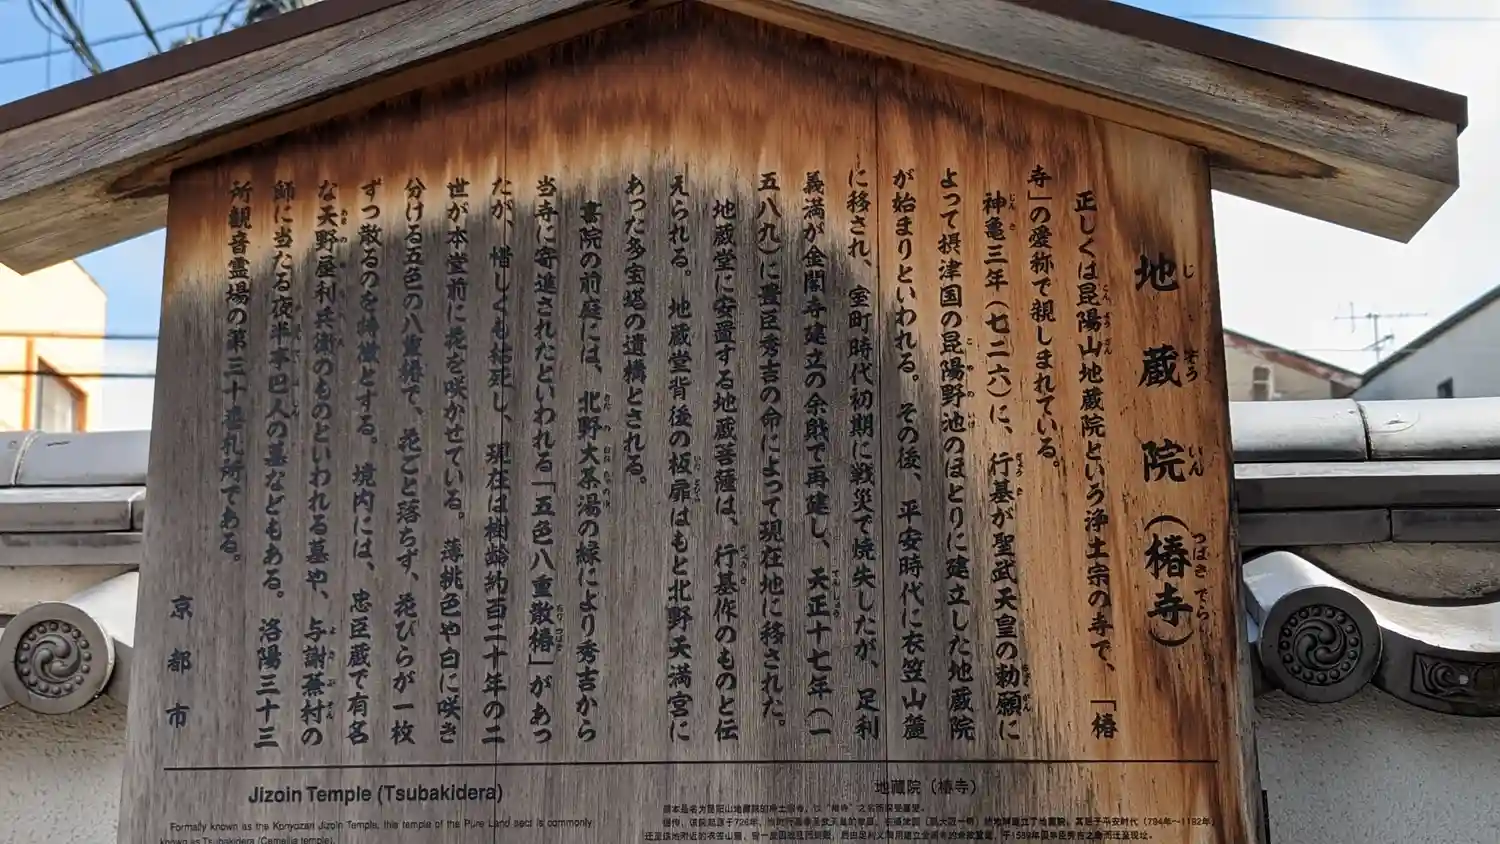 地蔵院(椿寺)
正しくは昆陽山地蔵院という浄土宗の寺で、「椿
寺」の愛称で親しまれている。
神亀三年(七二六)に、行基が聖武天皇の勅願に
よって摂津国の昆陽野池のほとりに建立した地蔵院
が始まりといわれる。その後、平安時代に衣笠山麓
に移され、室町時代初期に戦災で焼失したが、足利
義満が金閣寺建立の余財で再建し、天正十七年(一
五八九)に豊臣秀吉の命によって現在地に移された。
地蔵堂に安置する地蔵菩薩は、行基作のものと伝
えられる。地蔵堂背後の板扉はもと北野天満宮に
あった多宝塔の遺構とされる。
書院の前庭には、北野大茶湯の縁により秀吉から
当寺に寄進されたといわれる「五色八重散椿」があっ
たが、惜しくも枯死し、現在は樹齢約百二十年の二
世が本堂前に花を咲かせている。薄桃色や白に咲き
分ける五色の八重椿で、花ごと落ちず、花びらが一枚
ずつ散るのを特徴とする。境内には、忠臣蔵で有名
な天野屋利兵衛のものといわれる墓や、与謝蕪村の
師に当たる夜半亭巴人の墓などもある。洛陽三十三
所観音霊場の第三十番札所である。
京都市
Jizoin Temple (Tsubakidera)
Formally known as the Konyozan Jizoin Temple, this temple of the Pure Land sect is commonly
known as Tsubakidera (Camellia temple).
地藏院(椿寺)